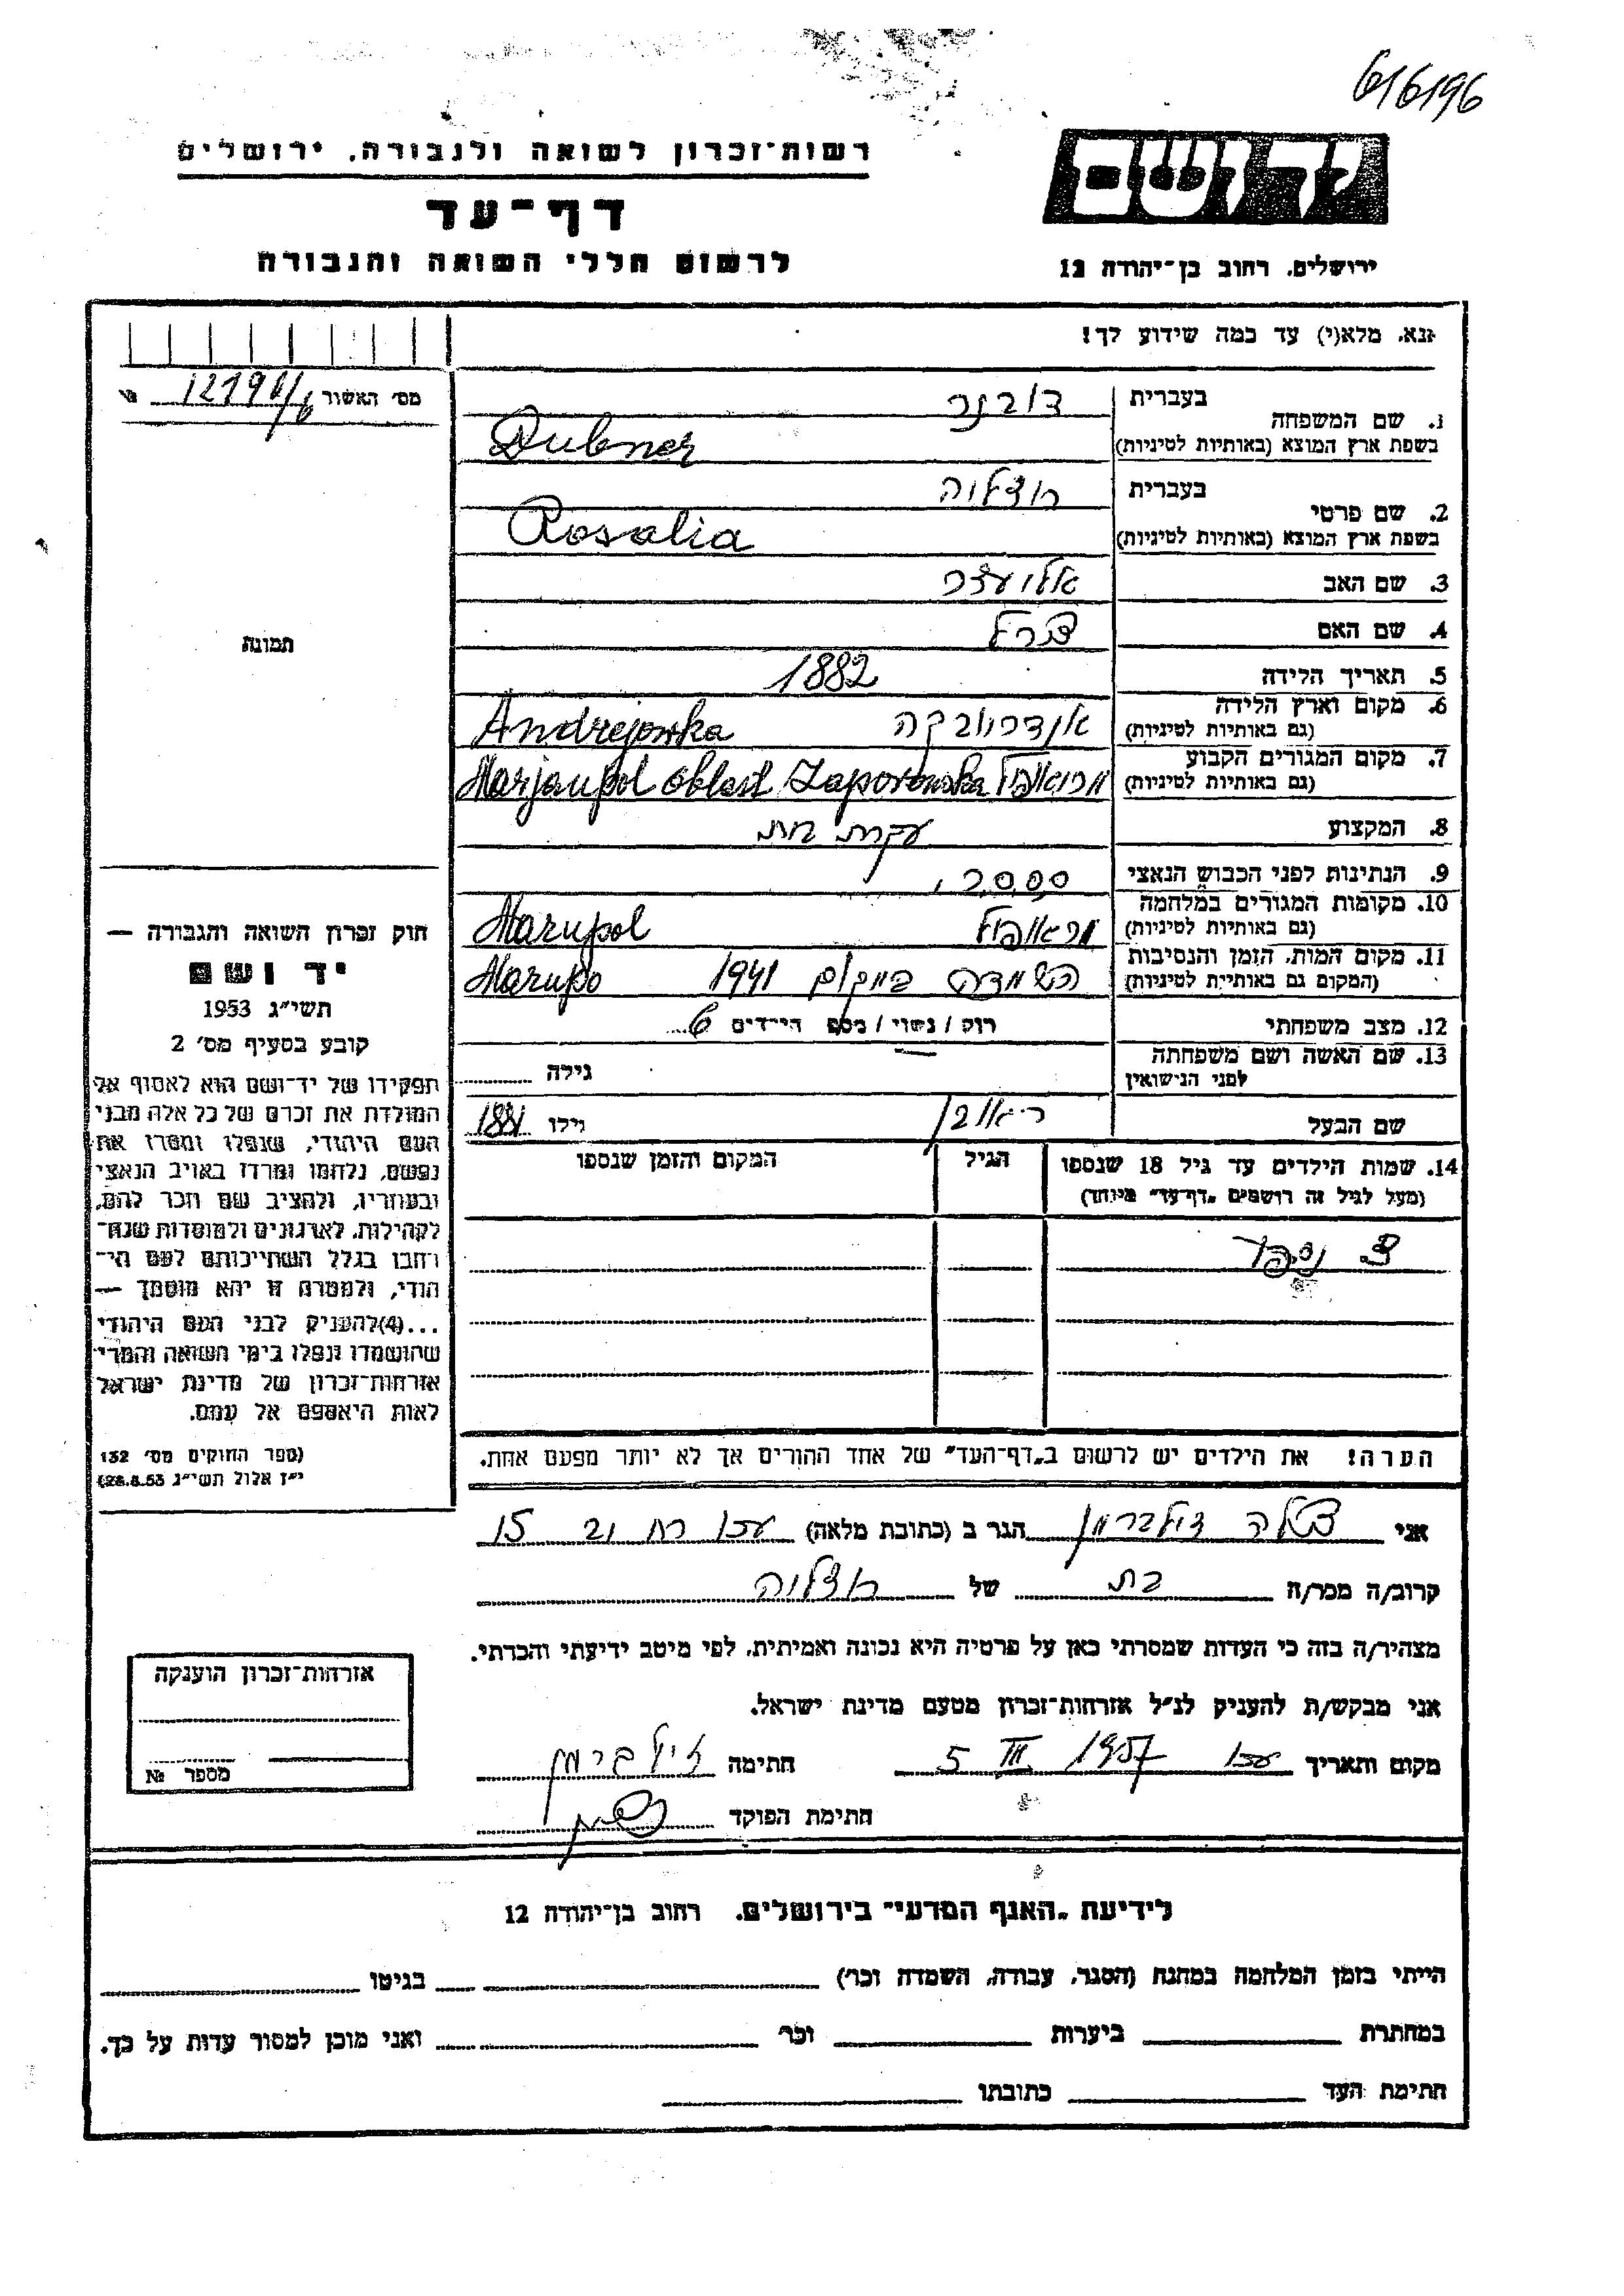 616196
רשות־זכרון לשואה ולגבורה, ירושלים
יד ושם
דף־עד
לרשום חללי השואה והגבורה
ירושלים, רחוב בן־יהודה 12
אנא, מלא(י) עד כמה שידוע לך!
מס׳ האשור 12191/6 №
1. שם המשפחה בעברית דובנר
בשפת ארץ המוצא (באותיות לטיניות) Dubner
2. שם פרטי בעברית רוזליה
בשפת ארץ המוצא (באותיות לטיניות) Rosalia
3. שם האב אליעזר
4. שם האם
תמונה
5. תאריך הלידה 1882
6. מקום וארץ הלידה (גם באותיות לטיניות) אנדריובקה Andrejowka
7. מקום המגורים הקבוע (גם באותיות לטיניות) מריאפול Marjaupol oblast Zaporowska
8. המקצוע עקרת בית
9. הנתינות לפני הכבוש הנאצי
10. מקומות המגורים במלחמה (גם באותיות לטיניות) מריאופול Marupol
11. מקום המות, הזמן והנסיבות (המקום גם באותיות לטיניות) השמדה במקום 1941 Marupo
12. מצב משפחתי רוק / נשוי / מספר הילדים 6
13. שם האשה ושם משפחתה לפני הנישואין גילה
שם הבעל ראובן גילו 1881
14. שמות הילדים עד גיל 18 שנספו הגיל המקום והזמן שנספו
(מעל לגיל זה רושמים „דף־עד״ מיוחד)
חוק זכרון השואה והגבורה —
יד ושם
תשי״ג 1953
קובע בסעיף מס׳ 2
תפקידו של יד־ושם הוא לאסוף אל
המולדת את זכרם של כל אלה מבני
העם היהודי, שנפלו ומסרו את
נפשם, נלחמו ומרדו באויב הנאצי
ובעוזריו, ולהציב שם וזכר להם,
לקהילות, לארגונים ולמוסדות שנח־
רבו בגלל השתייכותם לעם הי־
הודי, ולמטרה זו יהא מוסמך —
...(4)להעניק לבני העם היהודי
שהושמדו ונפלו בימי השואה והמרי
אזרחות־זכרון של מדינת ישראל
לאות היאספם אל עמם.
(ספר החוקים מס׳ 132
י״ז אלול תשי״ג 28.8.53)
הערה! את הילדים יש לרשום ב„דף־העד״ של אחד ההורים אך לא יותר מפעם אחת.
אני זילברמן הגר ב (כתובת מלאה) עכו 21 15
קרוב/ה מכר/ה בת של רוזליה
מצהיר/ה בזה כי העדות שמסרתי כאן על פרטיה היא נכונה ואמיתית, לפי מיטב ידיעתי והכרתי.
אני מבקש/ת להעניק לנ״ל אזרחות־זכרון מטעם מדינת ישראל.
מקום ותאריך עכו 5 III 1957 חתימה זילברמן
חתימת הפוקד
אזרחות־זכרון הוענקה
מספר №
לידיעת „האגף המדעי״ בירושלים, רחוב בן־יהודה 12
הייתי בזמן המלחמה במחנה (הסגר, עבודה, השמדה וכו׳) בגיטו
במחתרת ביערות וכו׳ ואני מוכן למסור עדות על כך.
חתימת העד כתובתו